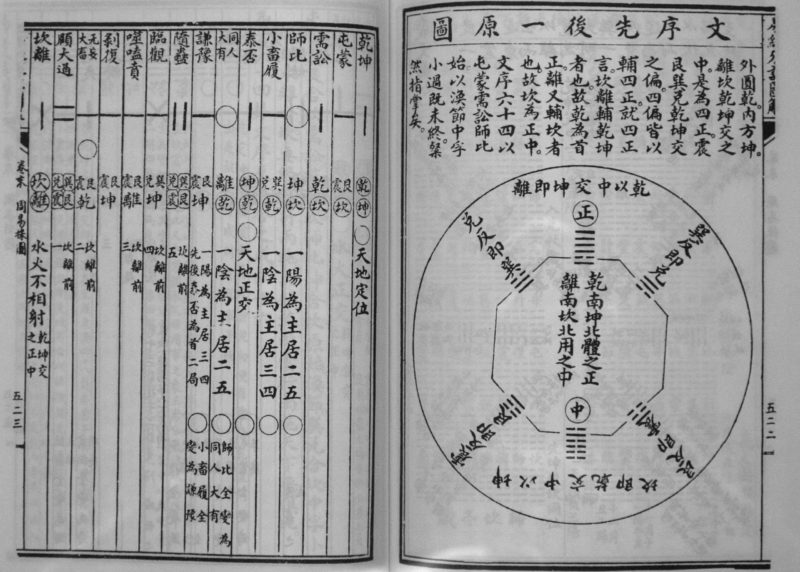 文序先後一原圖
外圓乾內方坤。
離坎乾坤交之
中。是為四正。震
艮巽兌乾坤交
之偏。四偏皆以
輔四正。就四正
言。坎離輔乾坤
者也。故乾為首
正。離又輔坎者
也。故坎為正中。
文序六十四。以
屯蒙需訟師比
始。以渙節中孚
小過既未終。粲
然指掌矣。
乾以中交坤即離
正
巽反即兌
兌反即巽
乾南坤北體之正
離南坎北用之中
中
艮反即震
坤以中交乾即坎
五二二
乾坤 乾坤 天地定位
屯蒙 艮震坎
需訟 乾坎
師比 坤坎 一陽為主居二五
小畜履 巽兌乾 一陰為主居三四
泰否 坤乾 天地正交
同人大有 離乾 一陰為主居二五 師比全變為同人大有
謙豫 艮震坤 一陽為主居三四 小畜履全變為謙豫
先後泰否為首二局
隨蠱 巽艮兌震 坎離前五
臨觀 巽兌坤 坎離前四
噬嗑賁 艮震離 坎離前三
剝復 艮震坤
无妄大畜 艮震乾 坎離前二
頤大過 巽艮兌震 坎離前一
坎離 坎離 水火不相射 乾坤交之正中
卷末 周易採圖
五二三